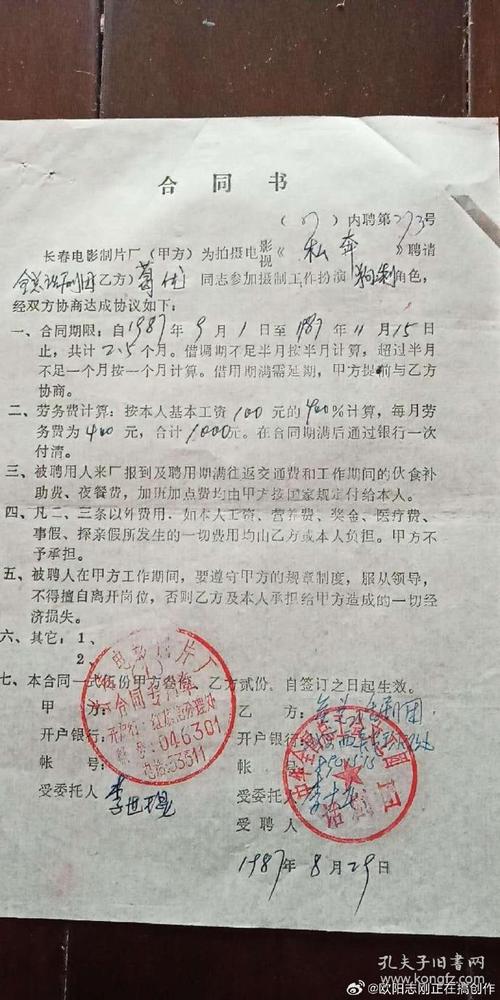 合同书
(87)内聘第273号
长春电影制片厂(甲方)为拍摄电影视《私奔》聘请
全总话剧团乙方)葛优同志参加摄制工作扮演角色,
经双方协商达成协议如下:
一、合同期限:自1987年9月1日至1987年11月15日
止,共计2.5个月。借调期不足半月按半月计算,超过半月
不足一个月按一个月计算。借用期满需延期,甲方提前与乙方
协商。
二、劳务费计算:按本人基本工资100元的400%计算,每月劳
务费为400元,合计1000元。在合同期满后通过银行一次
付清。
三、被聘用人来厂报到及聘用期满往返交通费和工作期间的伙食补
助费、夜餐费,加班加点费均由甲方按国家规定付给本人。
四、凡二、三条以外费用,如本人工资、营养费、奖金、医疗费、
事假、探亲假所发生的一切费用均由乙方或本人负担。甲方不
予承担。
五、被聘人在甲方工作期间,要遵守甲方的规章制度,服从领导,
不得擅自离开岗位,否则乙方及本人承担给甲方造成的一切经
济损失。
六、其它:1、
2、
七、本合同一式伍份甲方叁份,乙方贰份,自签订之日起生效。
甲方: 乙方:全总话剧团
开户银行: 开户银行:
帐号: 帐号:
受委托人 受委托人
受聘人
1987年8月29日
电影制片厂
合同专用章
046301
电话:53311
话剧团
孔夫子旧书网
www.kongfz.com
@欧阳志刚正在搞创作